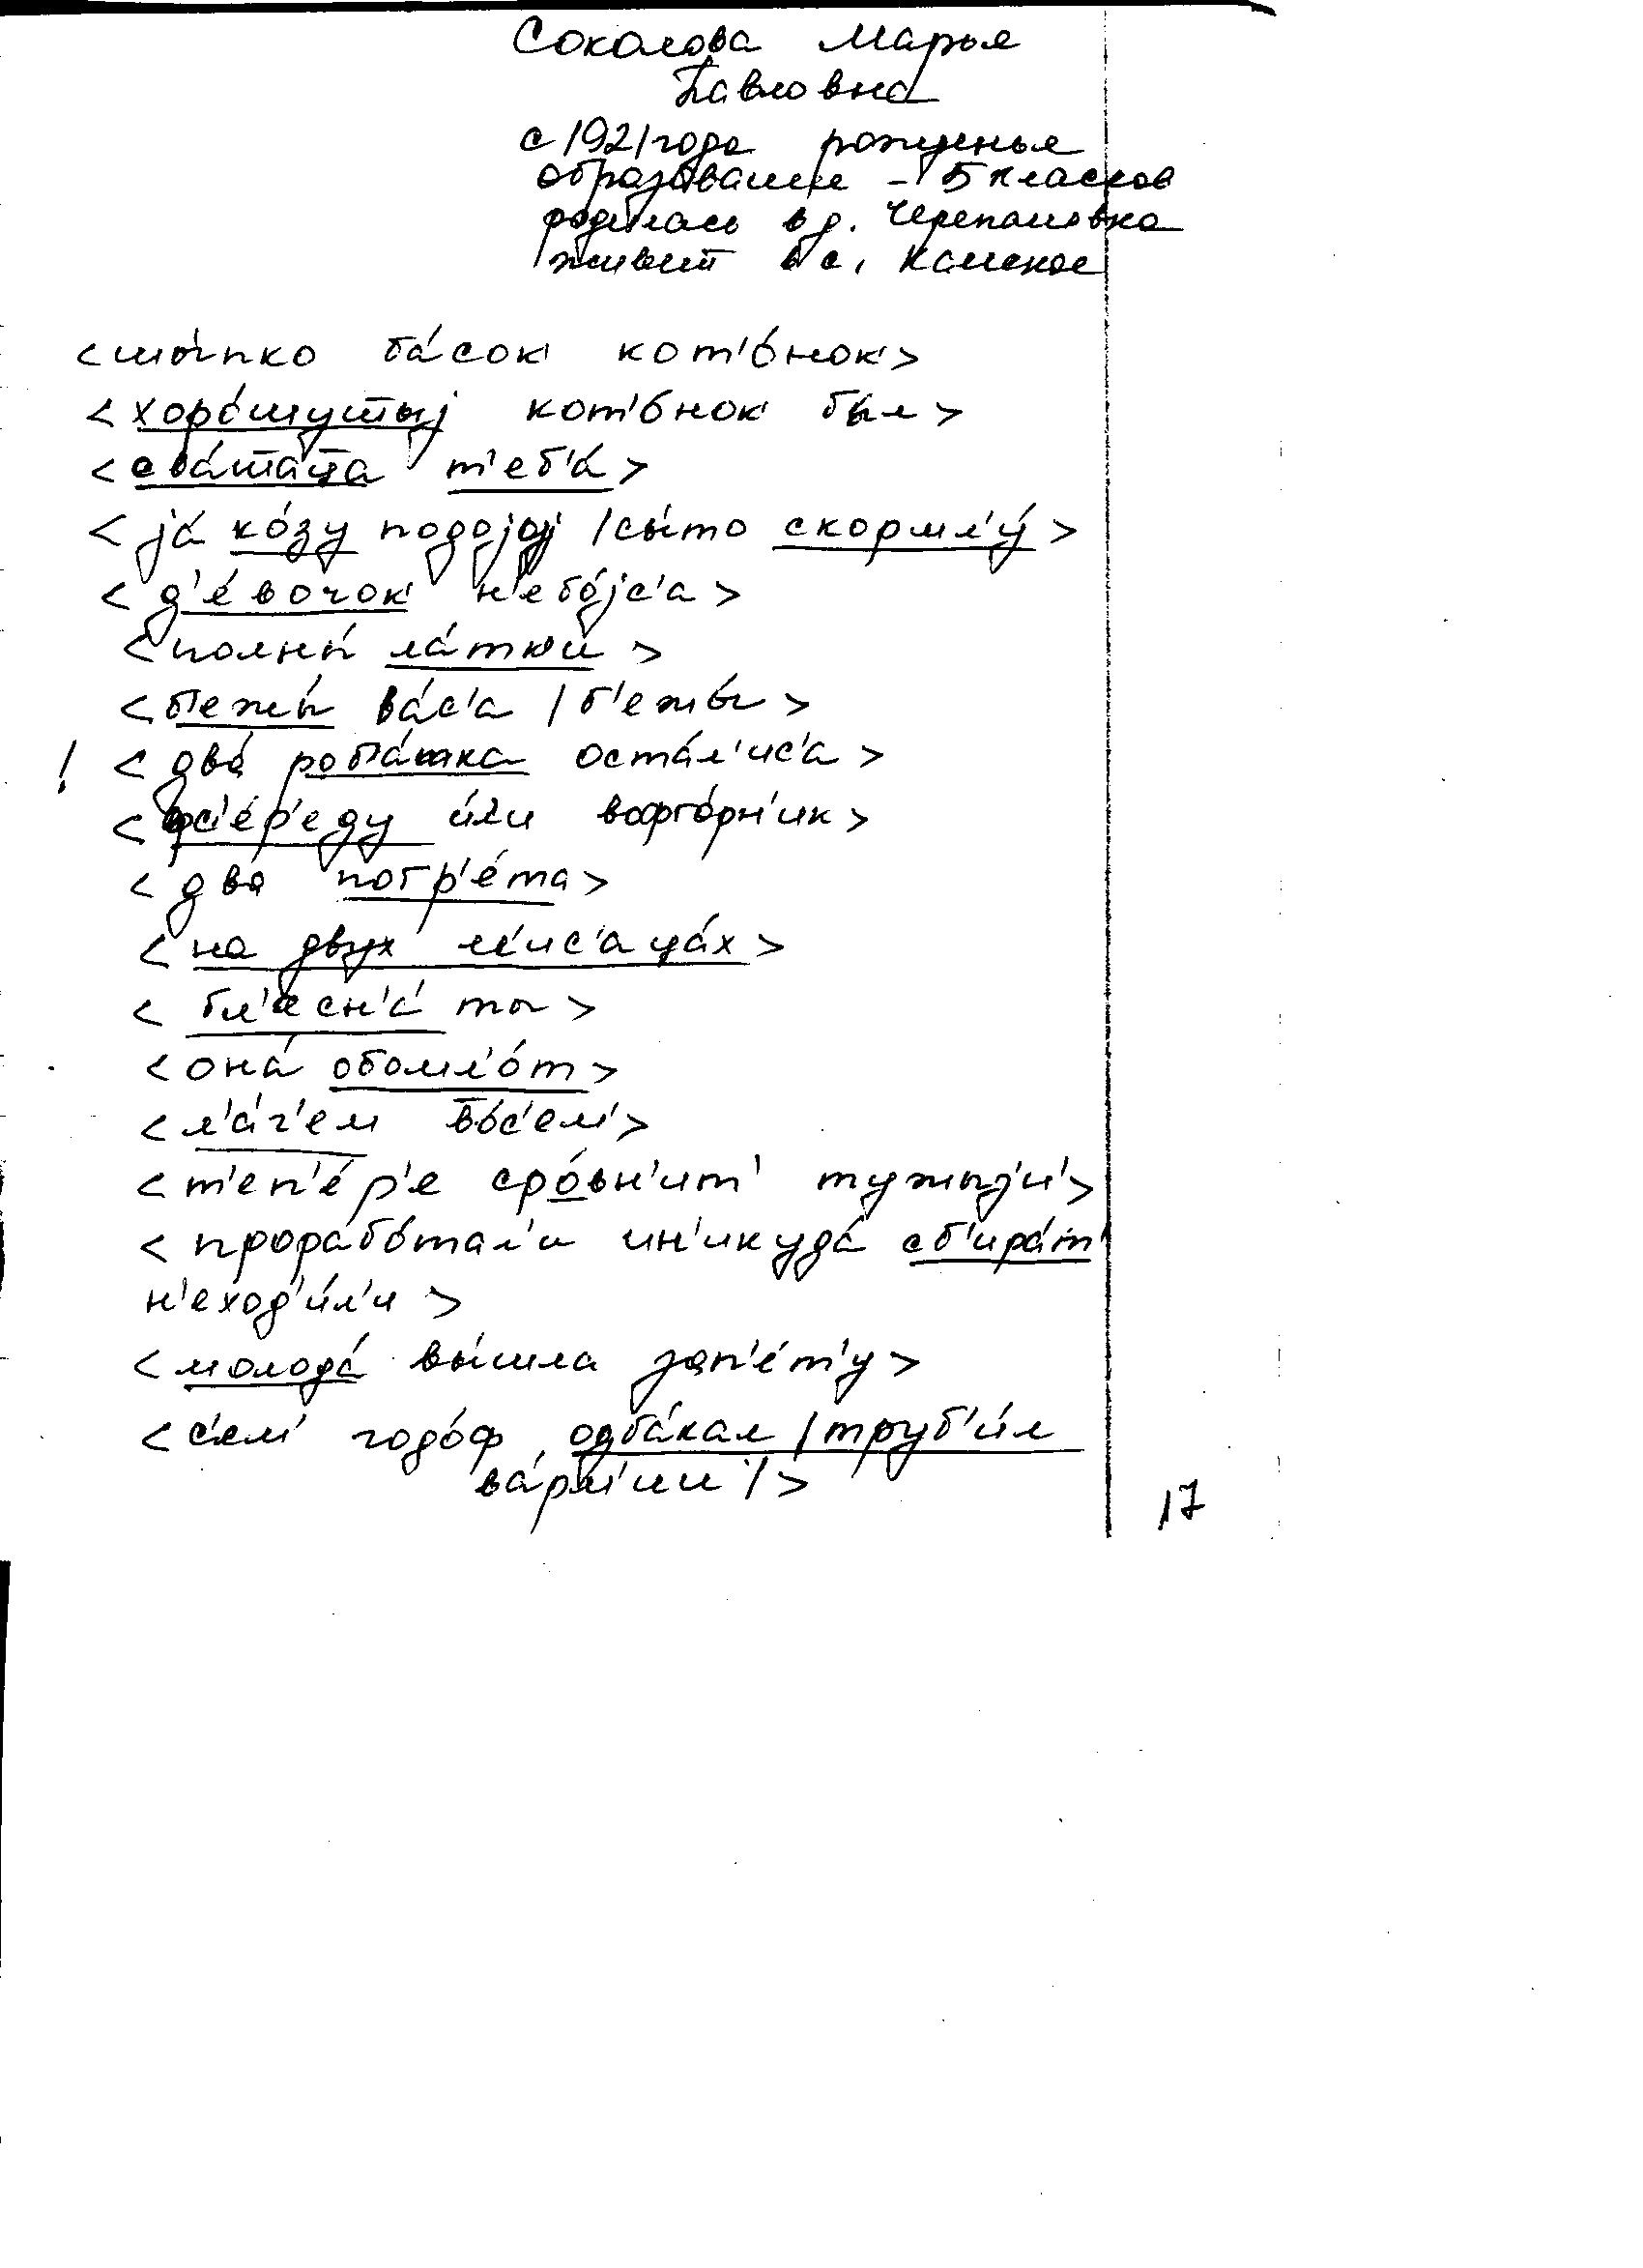 Соколова Марья
Павловна
с 1921 года рожденья
образование - 5 класков
родилась в д. Черепановка
живёт в с. Камское
<шы́пко ба́сок кот'о́нок>
<хоро́шутыj кот'о́нок бы́л>
<сва́таца т'еб'а́>
<jа́ ко́зу подоjу́ /сы́то скормл'у́>
<д'е́вочок н'ебо́jс'а>
<полны́ ла́тки>
<б'ежы́ ва́с'а / б'ежы́>
! <два́ роб'а́тка оста́л'ис'а>
<фс'е́р'еду и́л'и вофто́рн'ик>
<два потр'е́та>
<на двух м'ис'аца́х>
<бл'исн'а́ ты>
<она́ обомл'о́т>
<л'а́г'ем во́с'ем'>
<т'еп'е́р'е сро́вн'ит' тужы́з'и>
<прорабо́тал'и ин'икуда́ сб'ира́т'
н'еход'и́л'и>
<молода́ вы́шла зап'е́т'у>
<с'ем' годо́ф, одба́кал /труб'и́л
ва́рм'ии />
17